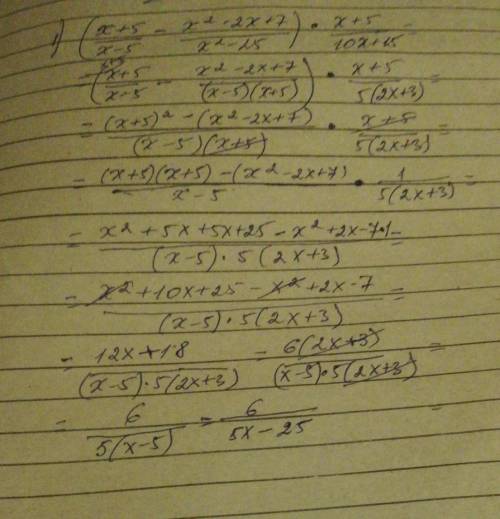 1) ((x+5)/(x-5) - (x²-2x+7)/(x²-25)) • (x+5)/(10x+15) =
= ((x+5)/(x-5) - (x²-2x+7)/((x-5)(x+5))) • (x+5)/(5(2x+3)) =
= ((x+5)² - (x²-2x+7))/((x-5)(x+5)) • (x+5)/(5(2x+3)) =
= ((x+5)(x+5) - (x²-2x+7))/(x-5) • 1/(5(2x+3)) =
= (x²+5x+5x+25-x²+2x-7•1)/((x-5)•5(2x+3)) =
= (x²+10x+25-x²+2x-7)/((x-5)•5(2x+3)) =
= (12x+18)/((x-5)•5(2x+3)) = (6(2x+3))/((x-5)•5(2x+3)) =
= 6/(5(x-5)) = 6/(5x-25)